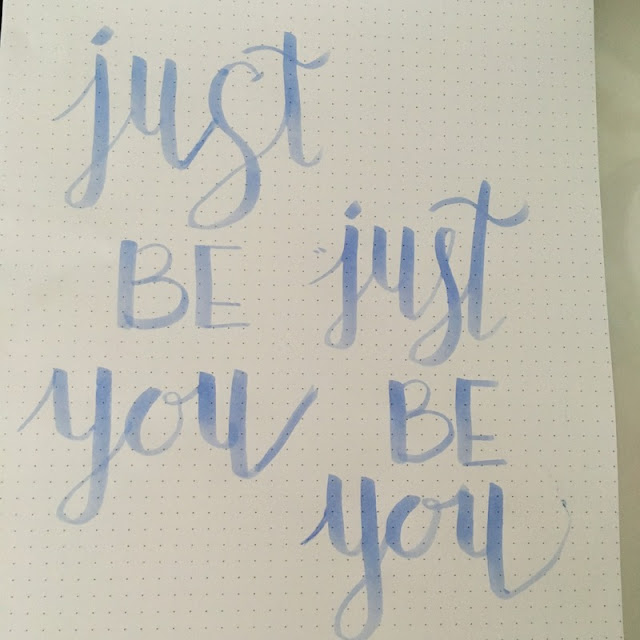 just
BE
you
just
BE
you